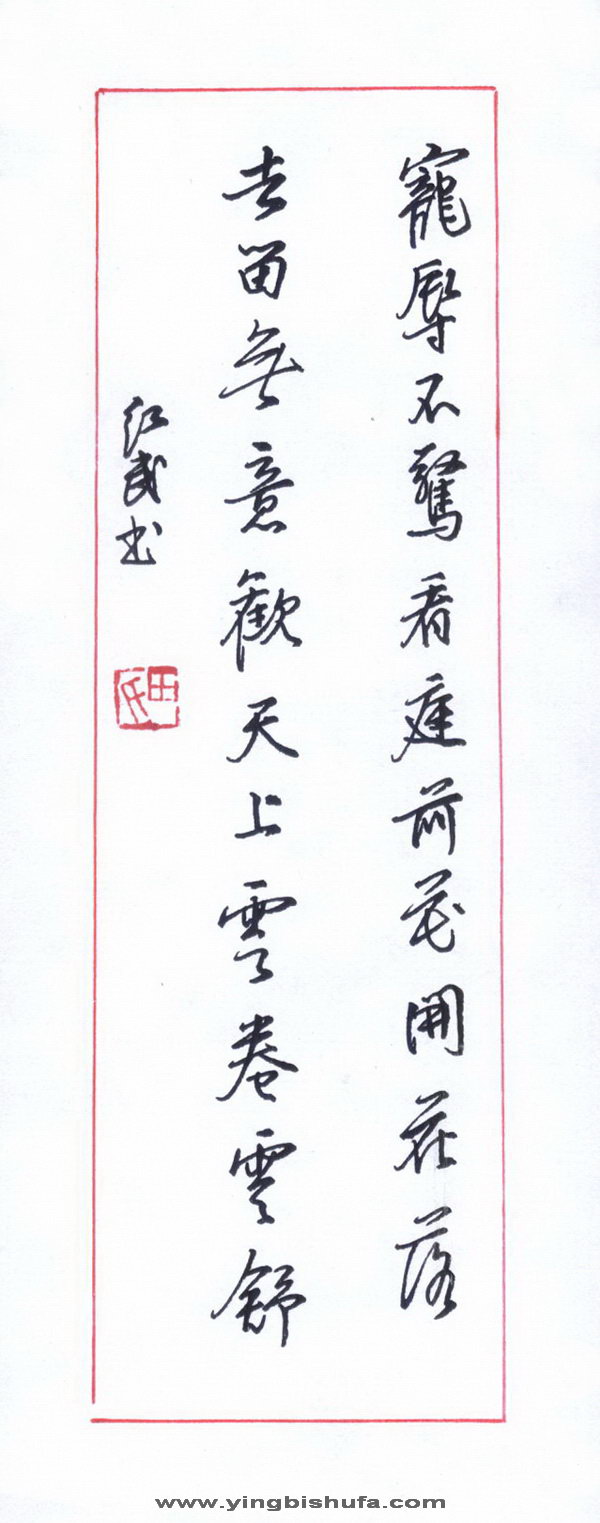 寵辱不驚看庭前花開花落
去留無意觀天上雲卷雲舒
紅武书
田氏
www.yingbishufa.com